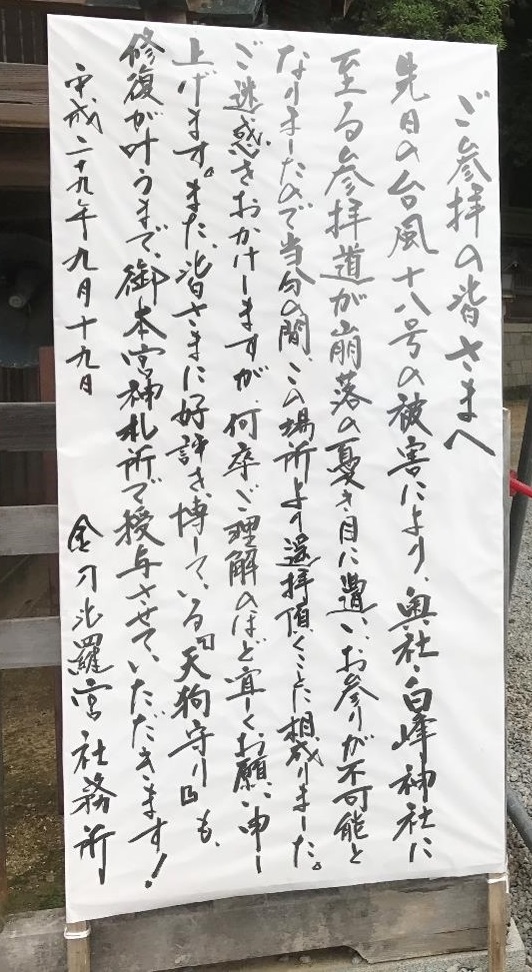 ご参拝の皆さまへ
先日の台風十八号の被害により、奥社・白峰神社に
至る参拝道が崩落の憂き目に遭い、お参りが不可能と
なりましたので当分の間、この場所より遥拝頂くことに相成りました。
ご迷惑をおかけしますが、何卒ご理解のほど宜しくお願い申し
上げます。また、皆さまに好評を博している『天狗守り』も、
修復が叶うまで、御本宮神札所で授与させていただきます!
平成二十九年九月十九日 金刀比羅宮社務所